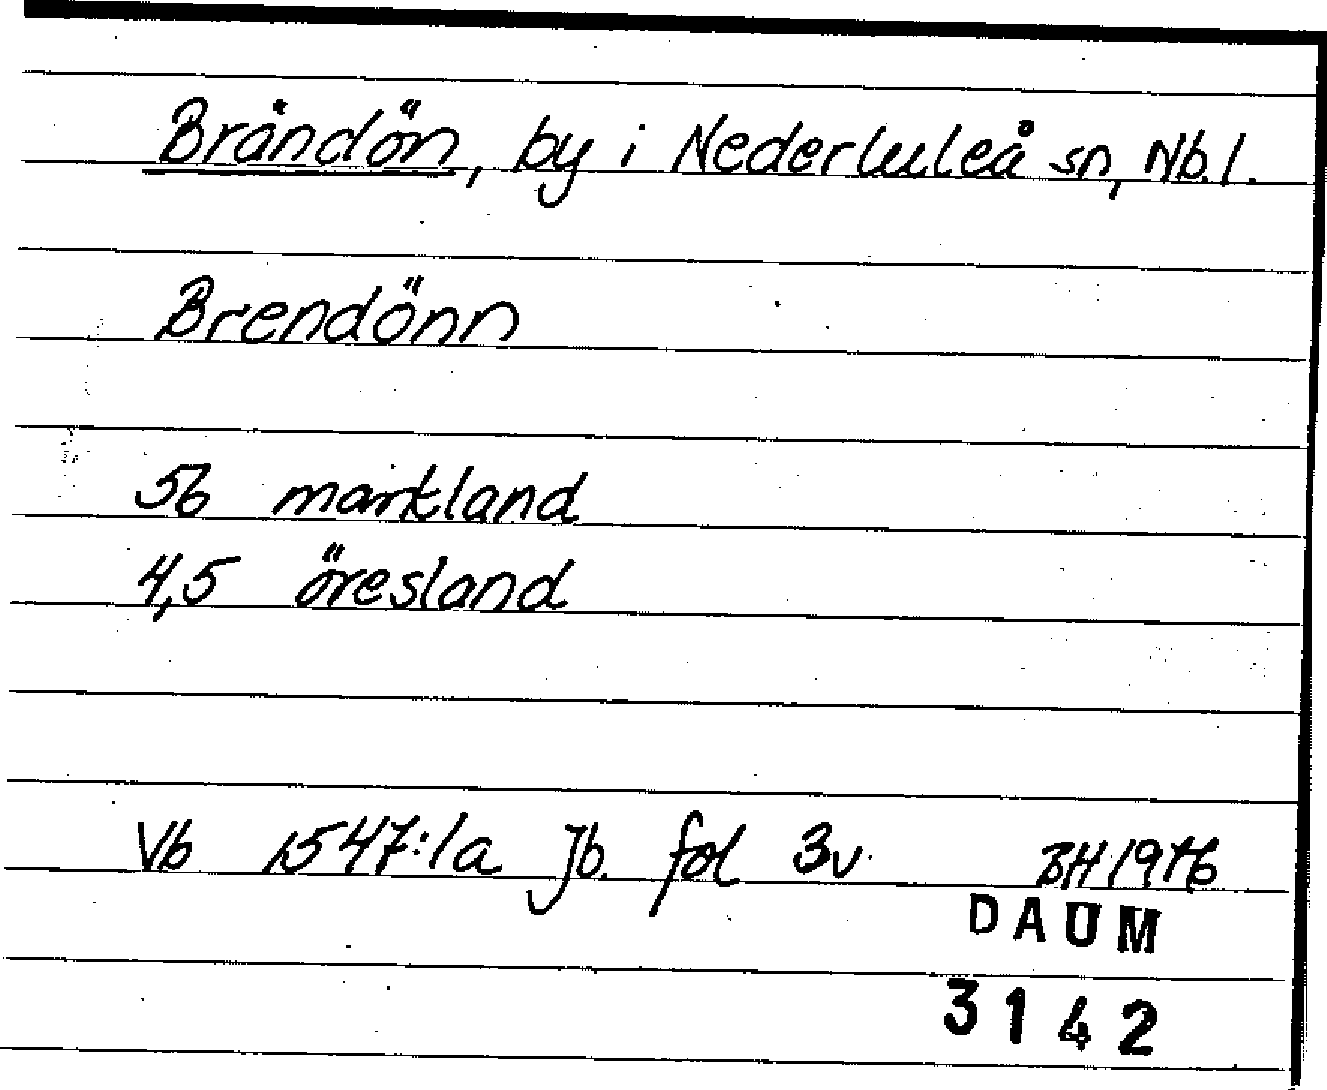 Brändön, by i Nederluleå sn, Nb.l.
Brendönn
56 markland
4,5 öresland
Vb 1547:1a Jb. fol 3v. BH 1976
DAUM
3142